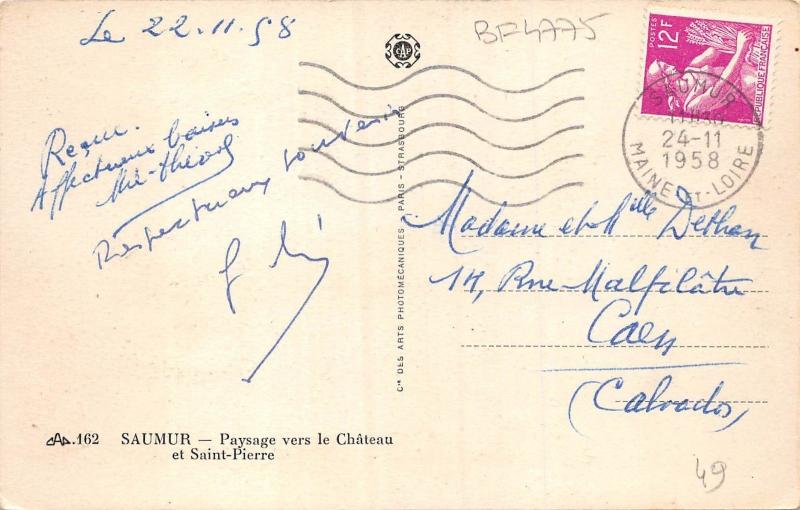 Le 22.11.58
BF4775
POSTES
12F
REPUBLIQUE FRANÇAISE
SAUMUR
24-11
1958
MAINE-ET-LOIRE
Affectueux baisers
Respectueux souvenir
Madame et Mlle Dethan
14, Rue Malfilâtre
Caen
(Calvados)
Cie DES ARTS PHOTOMÉCANIQUES PARIS - STRASBOURG
CAP
CAP.162 SAUMUR — Paysage vers le Château
et Saint-Pierre
49